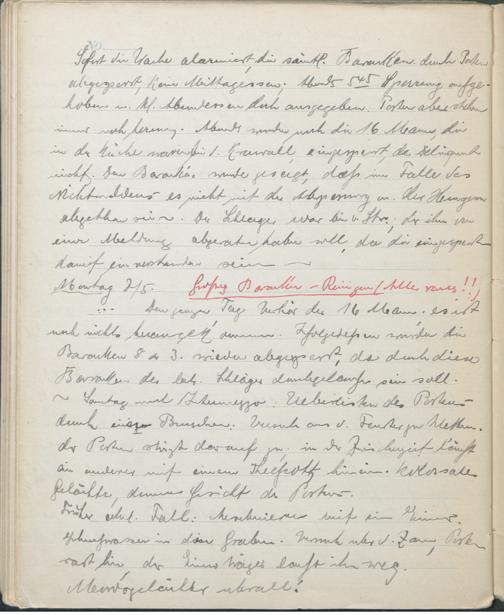 No.
Sofort die Wache alarmiert, die sämtl. Baracken durch Posten
abgesperrt, kein Mittagessen. Abends 5 45 Sperrung aufge-
hoben u. Abendessen doch ausgegeben. Posten aber stehen
immer noch herum. Abends wurden noch die 16 Mann, die
in der Küche waren bei d. Krawall, eingesperrt, der
nicht. Den Baracken wurde gesagt, dass im Falle des
Nichtmeldens es nicht mit der Absperrung u. der Hungern
abgethan sei. Der Schläger war bei
einer Meldung abgeraten haben soll, da die eingesperrten
damit einverstanden seien —
Montag 7/5. Großes Baracken-Reinigen (Alles raus!!)
... Den ganzen Tag Verhör der 16 Mann. es ist
noch nichts herausgekommen. Infolgedessen wurden die
Baracken 8 & 3. wieder abgesperrt, da durch diese
Baracken der betr. Schläger durchgelaufen sein soll.
~ Sonntag Ueberlisten des Postens
durch einen Burschen. Versuch aus d. Fenster zu klettern.
der Posten steigt darauf zu, in der Zwischenzeit läuft
ein anderer mit einem hinein. kolossales
Gelächter, dummes Gesicht des Postens.
Früher ähnl. Fall: mit ein Eimer.
in den Graben. Versuch über d. Zaun, Posten
rast hin, der Eimerträger läuft ihm weg.
überall!